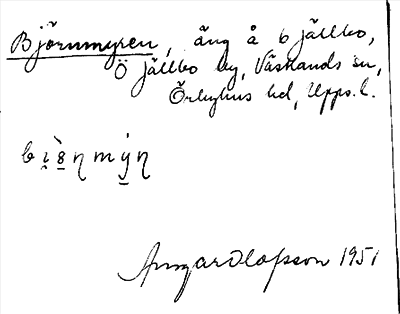 Björnmyren, äng å b jällbo,
Ö jällbo by, Västlands sn,
Örbyhus hd, Upps. l.
Ingwar Olofsson 1951